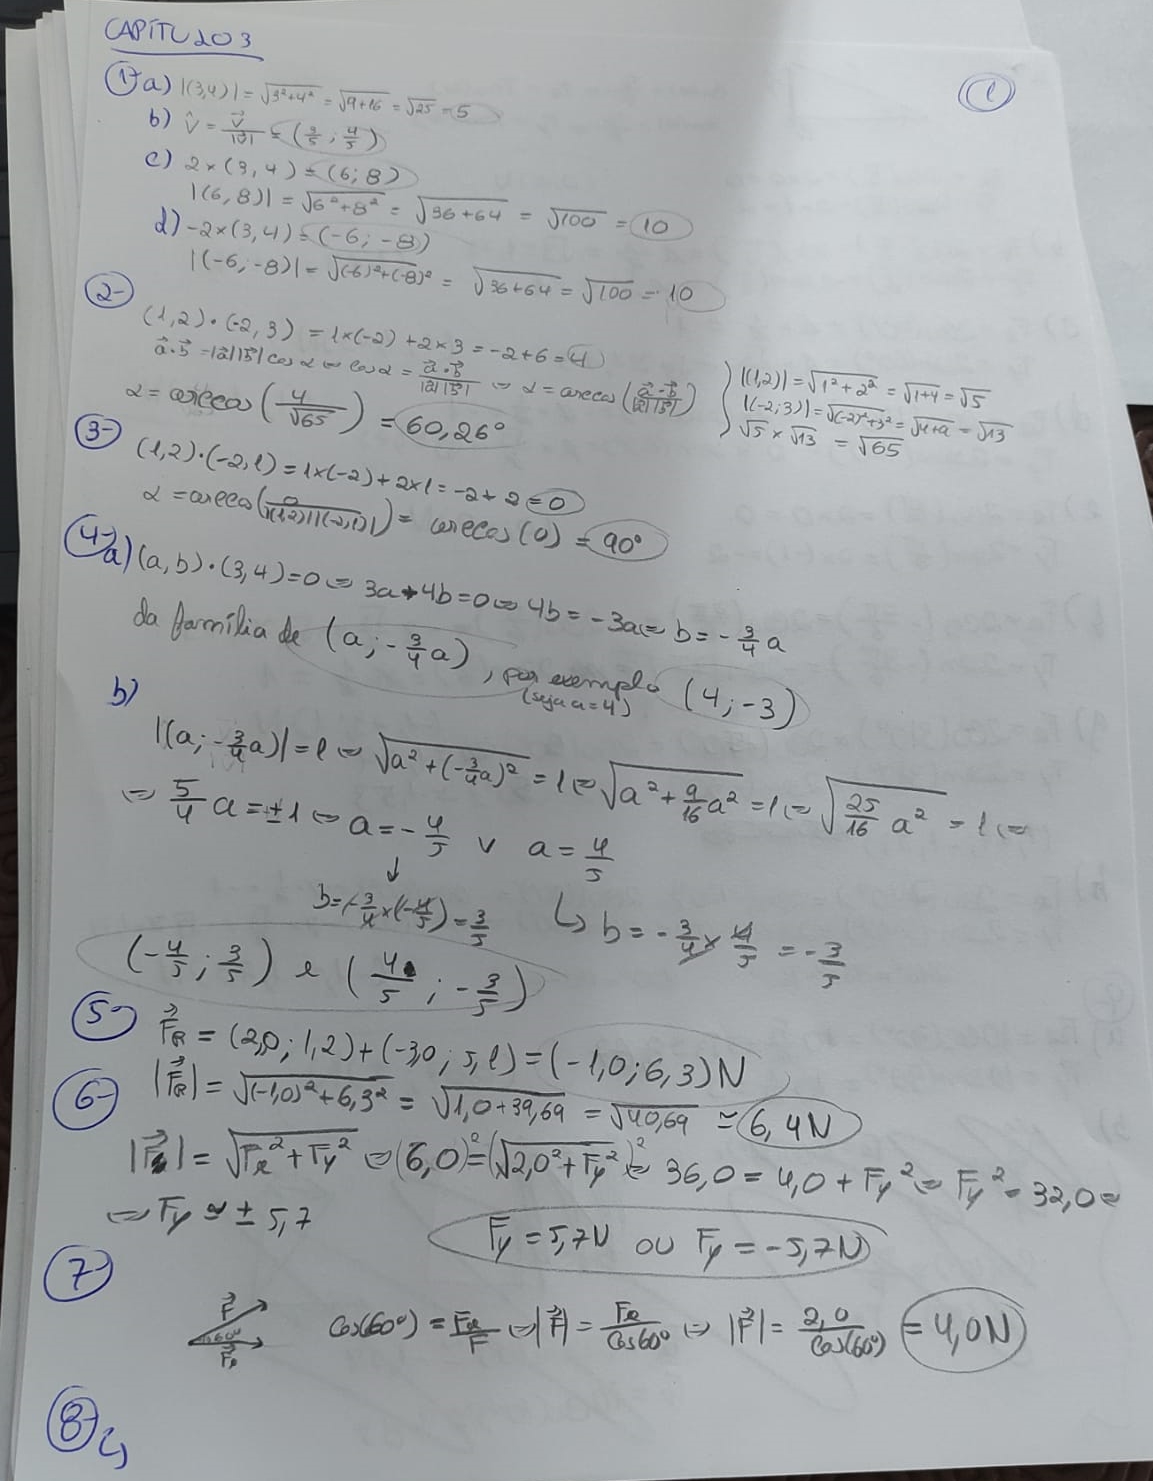 CAPÍTULO 3
1
1- a) |(3,4)| = √3²+4² = √9+16 = √25 = 5
b) v̂ = v⃗/|v⃗| = (3/5 ; 4/5)
c) 2×(3,4) = (6; 8)
|(6,8)| = √6²+8² = √36+64 = √100 = 10
d) -2×(3,4) = (-6; -8)
|(-6,-8)| = √(-6)²+(-8)² = √36+64 = √100 = 10
2-
(1,2)·(-2,3) = 1×(-2)+2×3 = -2+6 = 4
a⃗·b⃗ = |a⃗||b⃗| cos α ⇔ cos α = a⃗·b⃗/|a⃗||b⃗| ⇔ α = arccos(a⃗·b⃗/|a⃗||b⃗|)
α = arccos(4/√65) = 60,26°
|(1,2)| = √1²+2² = √1+4 = √5
|(-2;3)| = √(-2)²+3² = √4+9 = √13
√5 × √13 = √65
3-
(1,2)·(-2,1) = 1×(-2)+2×1 = -2+2 = 0
α = arccos(0/|(1,2)||(-2,1)|) = arccos(0) = 90°
4-
a) (a,b)·(3,4)=0 ⇔ 3a+4b=0 ⇔ 4b=-3a ⇔ b = -3/4 a
da família de (a; -3/4 a), por exemplo (4; -3)
(seja a=4)
b)
|(a; -3/4 a)| = 1 ⇔ √a²+(-3/4 a)² = 1 ⇔ √a²+9/16 a² = 1 ⇔ √25/16 a² = 1 ⇔
⇔ 5/4 a = ±1 ⇔ a = -4/5 ∨ a = 4/5
↓
b = -3/4×(-4/5) = 3/5 ↳ b = -3/4 × 4/5 = -3/5
(-4/5 ; 3/5) e (4/5 ; -3/5)
5- F⃗R = (2,0; 1,2)+(-3,0; 5,1) = (-1,0; 6,3) N
|F⃗R| = √(-1,0)²+6,3² = √1,0+39,69 = √40,69 ≈ 6,4N
6-
|F⃗| = √Fx²+Fy² ⇔ (6,0)² = (√2,0²+Fy²)² ⇔ 36,0 = 4,0+Fy² ⇔ Fy² = 32,0 ⇔
⇔ Fy ≈ ±5,7
Fy = 5,7N OU Fy = -5,7N
7-
F⃗ 60° F⃗x cos(60°) = Fx/F ⇔ |F⃗| = Fx/cos60° ⇔ |F⃗| = 2,0/cos(60°) = 4,0N
8-